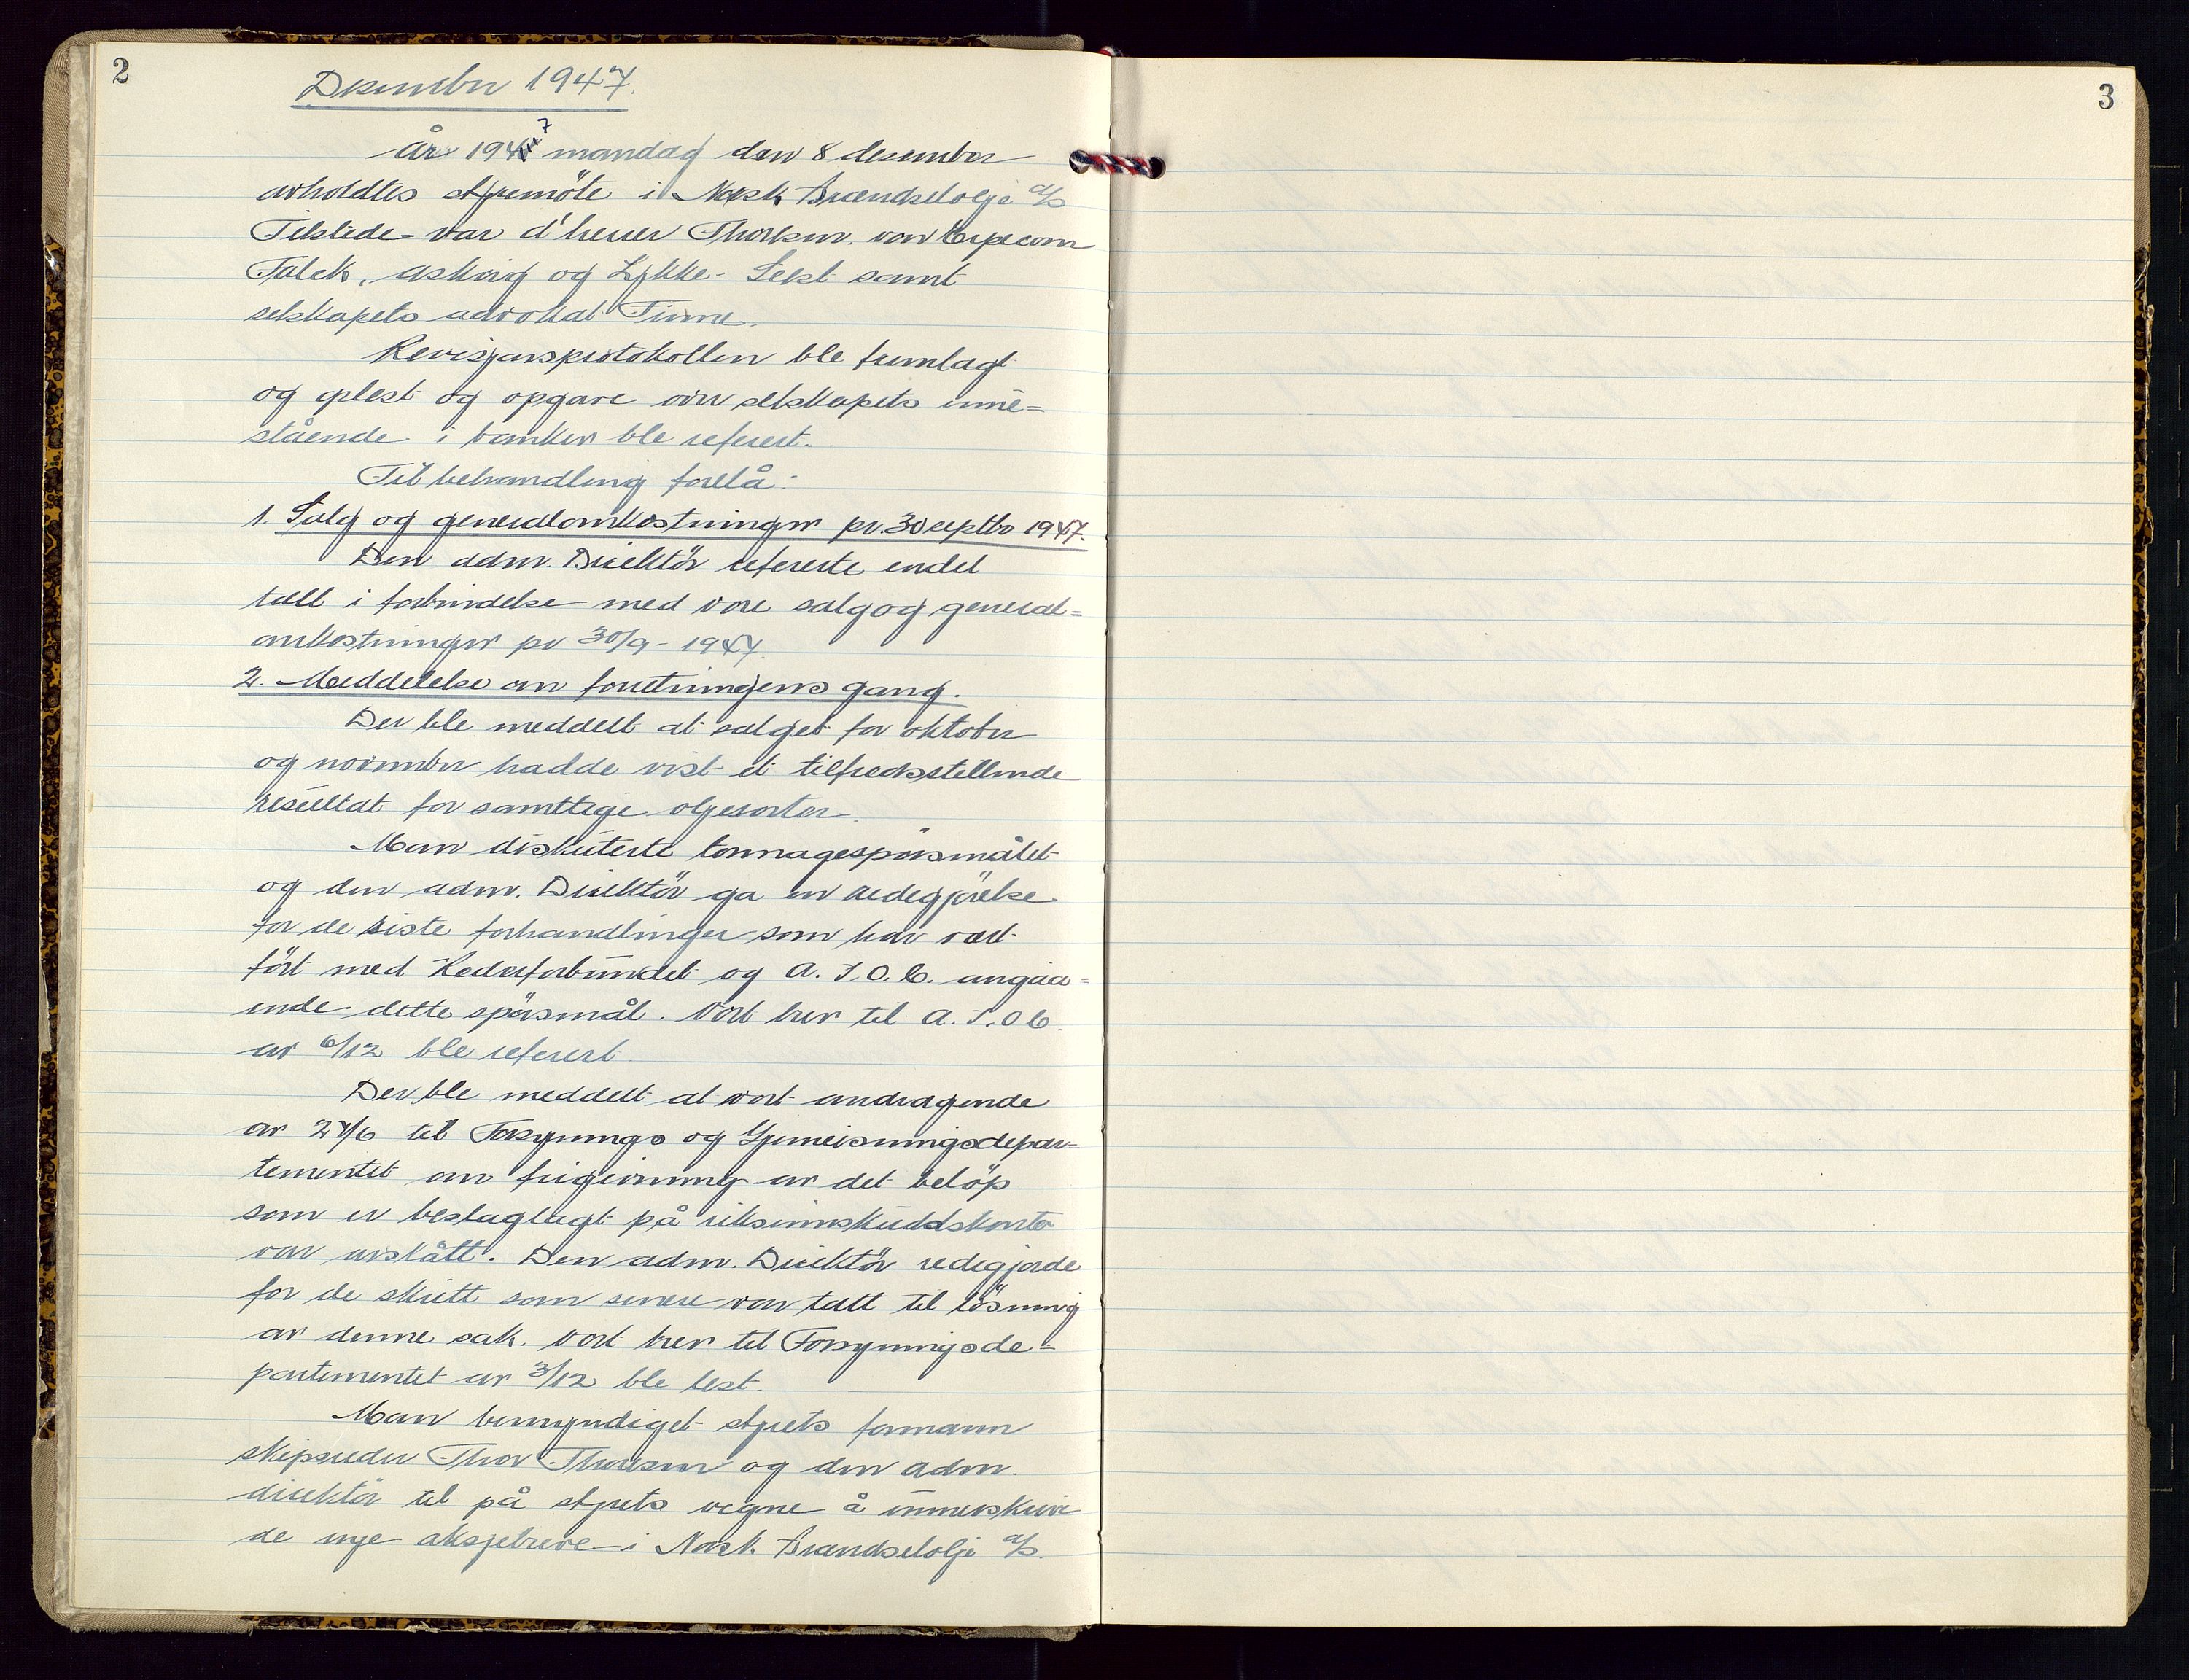 2
Desember 1947.
År 1947 mandag den 8 desember
avholdtes styremöte i Norsk Brændselolje a/s
Tilstede var d'herrer Thorkm. von Erpecom
Falck, Askvig og Lykke-Seest samt
selskapets advokat Finne.
Revisjonsprotokollen ble fremlagt
og oplest og opgave over selskapets inne=
stående i banker ble referert.
Til behandling forelå:
1. Salg og generalomkostninger pr. 30 septbr 1947.
Den adm. Direktör refererte endel
tall i forbindelse med vore salg og general=
omkostninger pr 30/9 - 1947
2. Meddelelse om forretningens gang.
Der ble meddelt at salget for oktober
og november hadde vist et tilfredsstillende
resultat for samtlige oljesorter.
Man diskuterte tonnagespörsmålet
og den adm. Direktör ga en redegjörelse
for de siste forhandlinger som har vært
fört med Rederforbundet og A.I.O.C. angåa=
ende dette spörsmål. Vort brev til A.I.O.C.
av 6/12 ble referert.
Der ble meddelt at vort andragende
av 24/6 til Forsynings og Gjenreisningsdepar=
tementet om frigivning av det belöp
som er beslaglagt på riksinnskuddskonto
var avslått. Den adm. Direktör redegjorde
for de skritt som senere var tatt til lösning
av denne sak. Vort brev til Forsyningsde=
partementet av 3/12 ble lest.
Man bemyndiget styrets formann
skipsreder Thor Thoresen og den adm.
direktör til på styrets vegne å underskrive
de nye aksjebreve i Norsk Brændselolje a/s.
3